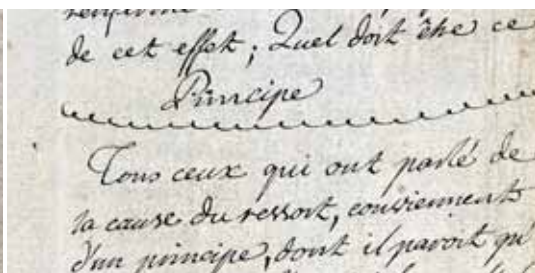 renferme
de cet effet; Quel doit être ce
Principe
Tous ceux qui ont parlé de
la cause du ressort, conviennent
d'un principe, dont il paroit qu'